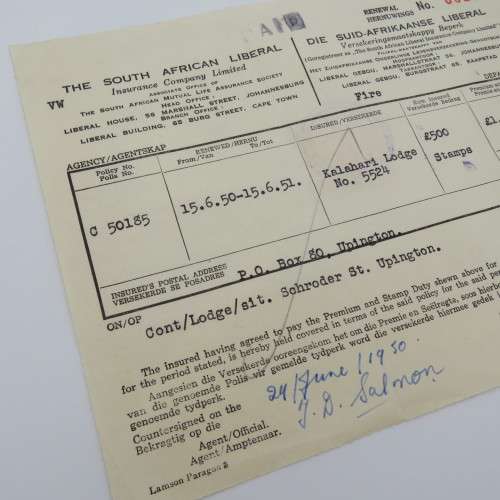 RENEWAL
HERNUWINGS No.
AID
VW
THE SOUTH AFRICAN LIBERAL
Insurance Company Limited
ASSOCIATE OFFICE OF
THE SOUTH AFRICAN MUTUAL LIFE ASSURANCE SOCIETY
HEAD OFFICE :
LIBERAL HOUSE, 56 MARSHALL STREET, JOHANNESBURG
BRANCH OFFICE :
LIBERAL BUILDING, 65 BURG STREET, CAPE TOWN
DIE SUID-AFRIKAANSE LIBERAL
Versekeringsmaatskappy Beperk
(Geregistreer as „The South African Liberal Insurance Company Limited"
HOOFKANTOOR :
LIBERAL GEBOU, MARSHALLSTRAAT 56, JOHANNESBURG
LIBERAL GEBOU, BURGSTRAAT 65, KAAPSTAD
Fire
AGENCY/AGENTSKAP
Policy No.
Polis No.
RENEWED/HERNU
From/Van To/Tot
INSURED/VERSEKERDE
Sum Insured
Versekerde Bedrag
C 50185
15.6.50-15.6.51.
Kalahari Lodge
No. 5524
£500
Stamps
£1.
INSURED'S POSTAL ADDRESS
VERSEKERDE SE POSADRES
P.O. Box 80, Upington.
ON/OP
Cont/Lodge/sit. Schroder St. Upington.
The insured having agreed to pay the Premium and Stamp Duty shewn above for
for the period stated, is hereby held covered in terms of the said policy for the said
Aangesien die Versekerde ooreengekom het om die Premie en Seëlregte, soos
van die genoemde Polis vir gemelde tydperk word die versekerde hiermee gedek
genoemde tydperk.
Countersigned on the
Bekragtig op die
24/June/1950.
J. D. Salmon
Agent/Official.
Agent/Amptenaar.
Lamson Paragon